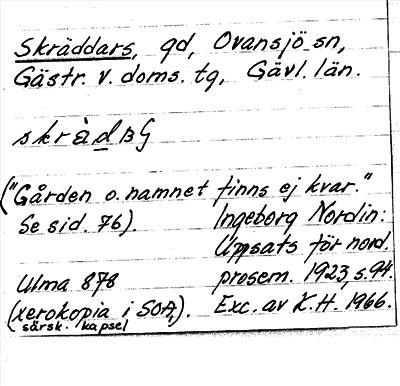 Skräddars, gd, Ovansjö sn,
Gästr. v. doms. tg, Gävl. län.
skràdBG
("Gården o. namnet finns ej kvar."
Se sid. 76). Ingeborg Nordin:
Uppsats för nord.
Ulma 878 prosem. 1923, s. 94.
(xerokopia i SOA,). Exc. av K.H. 1966.
särsk. kapsel